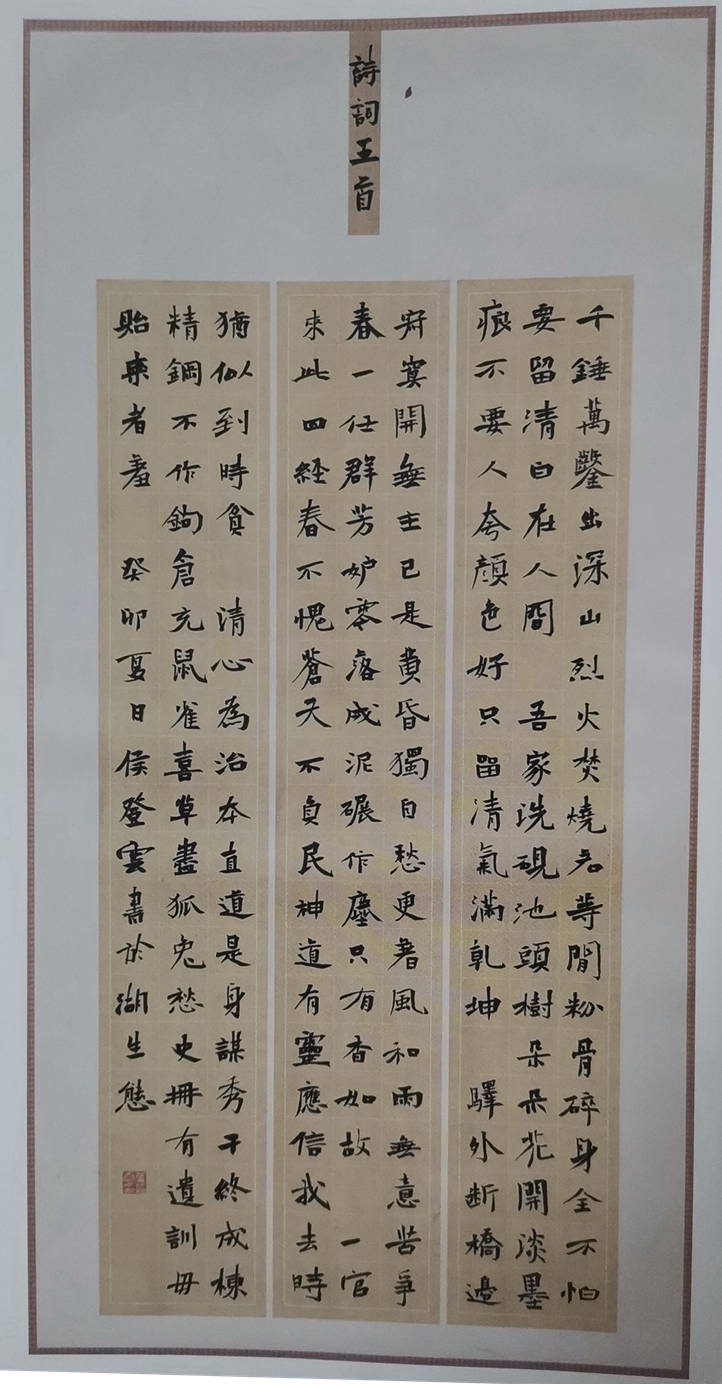 詩詞五首
千錘萬鑿出深山烈火焚燒若等閒粉骨碎身全不怕
要留清白在人間 吾家洗硯池頭樹朵朵花開淡墨
痕不要人夸顏色好只留清氣滿乾坤 驛外断橋邊
寂寞開無主已是黄昏獨自愁更著風和雨無意苦爭
春一任群芳妒零落成泥碾作塵只有香如故 一官
来此四経春不愧蒼天不負民神道有靈應信我去時
猶似到時貧 清心為治本直道是身謀秀干終成棟
精鋼不作鉤倉充鼠雀喜草盡狐兔愁史冊有遺訓毋
貽來者羞 癸卯夏日侯登雲書於湖生態